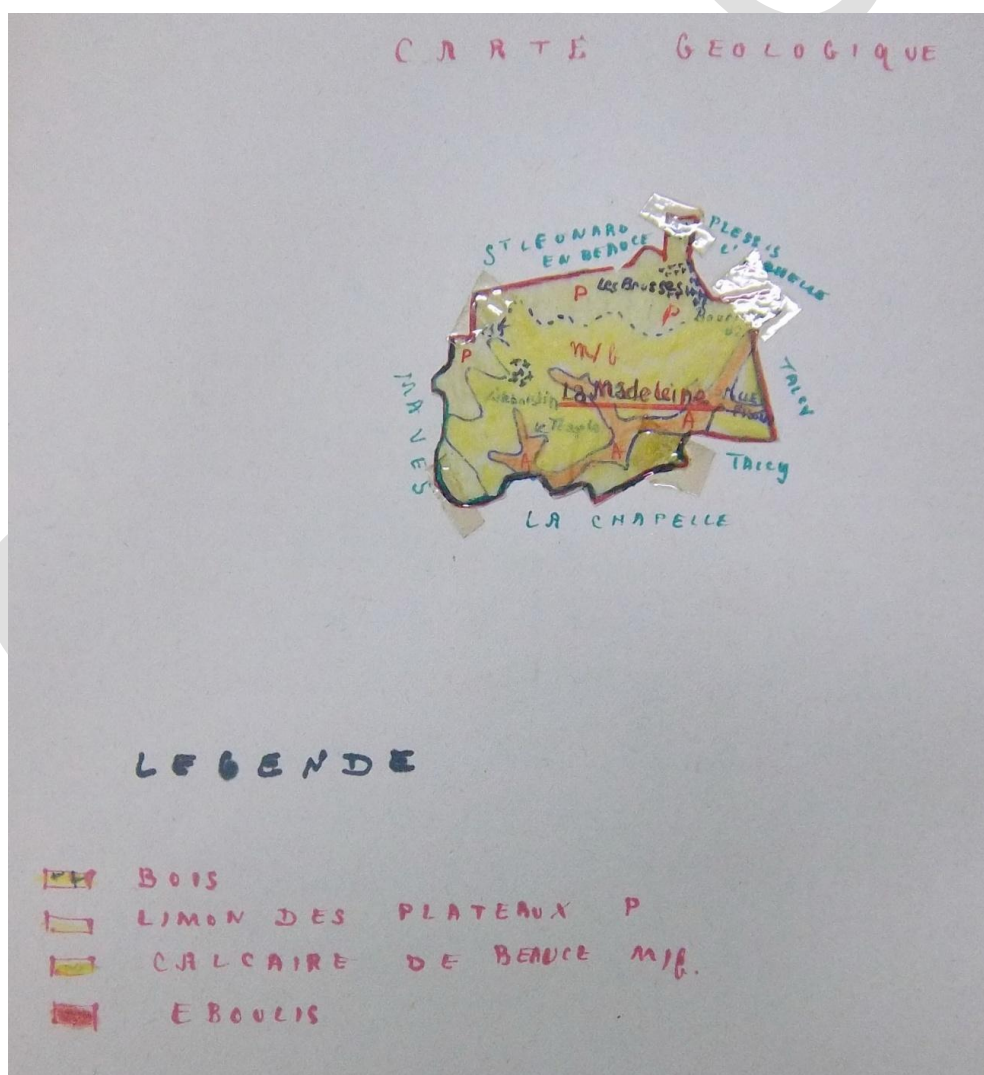 CARTE GEOLOGIQUE
ST LEONARD
EN BEAUCE
PLESSIS
L'
P
Les Brusses
P
P
m/b
MAVES
La Madeleine
le Temple
A
A
A
TALCY
TALCY
LA CHAPELLE
LEGENDE
BOIS
LIMON DES PLATEAUX P
CALCAIRE DE BEAUCE M/B.
EBOULIS